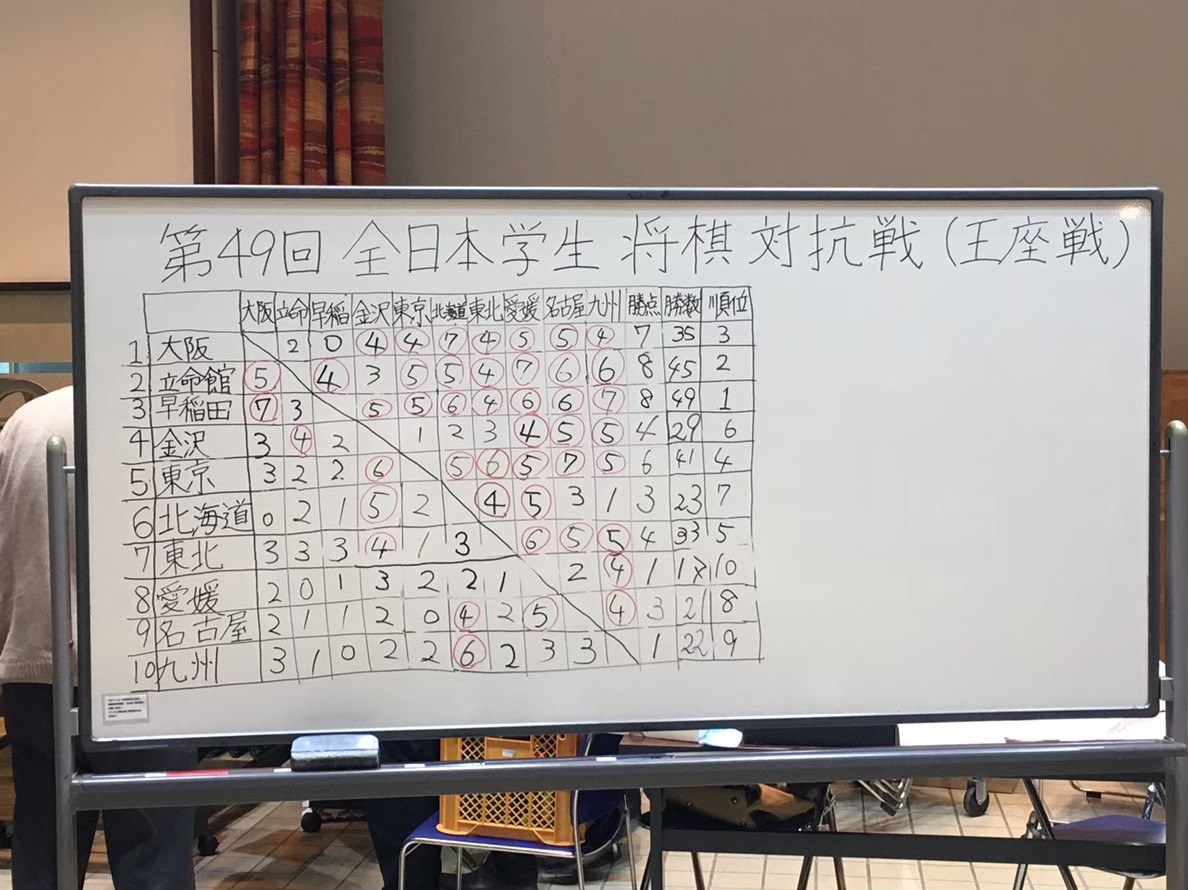 第49回 全日本学生 将棋 対抗戦 (王座戦)
大阪 立命 早稲 金沢 東京 北海道 東北 愛媛 名古屋 九州 勝点 勝数 順位
1 大阪 2 0 4 4 7 4 5 5 4 7 35 3
2 立命館 5 4 3 5 5 4 7 6 6 8 45 2
3 早稲田 7 3 5 5 6 4 6 6 7 8 49 1
4 金沢 3 4 2 1 2 3 4 5 5 4 29 6
5 東京 3 2 2 6 5 6 5 7 5 6 41 4
6 北海道 0 2 1 5 2 4 5 3 1 3 23 7
7 東北 3 3 3 4 1 3 6 5 5 4 33 5
8 愛媛 2 0 1 3 2 2 1 2 4 1 17 10
9 名古屋 2 1 1 2 0 4 2 5 4 3 21 8
10 九州 3 1 0 2 2 6 2 3 3 1 22 9